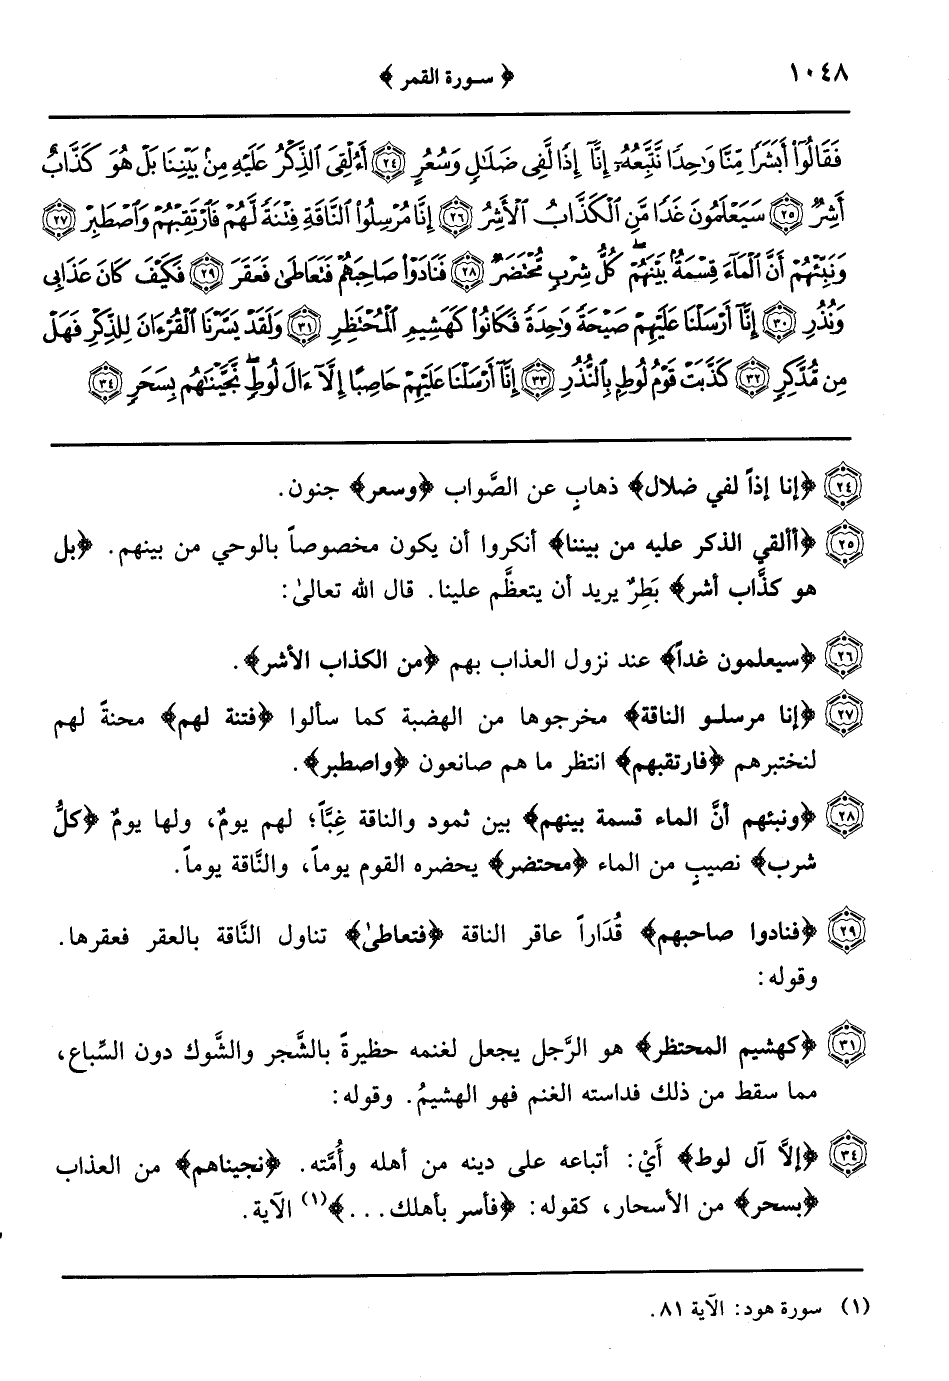 ١٠٤٨ ﴿ سـورة القمر ﴾
فَقَالُوٓا۟ أَبَشَرًا مِّنَّا وَٰحِدًا نَّتَّبِعُهُۥٓ إِنَّآ إِذًا لَّفِى ضَلَٰلٍ وَسُعُرٍ ﴿٢٤﴾ أَءُلْقِىَ ٱلذِّكْرُ عَلَيْهِ مِنۢ بَيْنِنَا بَلْ هُوَ كَذَّابٌ
أَشِرٌ ﴿٢٥﴾ سَيَعْلَمُونَ غَدًا مَّنِ ٱلْكَذَّابُ ٱلْأَشِرُ ﴿٢٦﴾ إِنَّا مُرْسِلُوا۟ ٱلنَّاقَةِ فِتْنَةً لَّهُمْ فَٱرْتَقِبْهُمْ وَٱصْطَبِرْ ﴿٢٧﴾
وَنَبِّئْهُمْ أَنَّ ٱلْمَآءَ قِسْمَةٌۢ بَيْنَهُمْ ۖ كُلُّ شِرْبٍ مُّحْتَضَرٌ ﴿٢٨﴾ فَنَادَوْا۟ صَاحِبَهُمْ فَتَعَاطَىٰ فَعَقَرَ ﴿٢٩﴾ فَكَيْفَ كَانَ عَذَابِى
وَنُذُرِ ﴿٣٠﴾ إِنَّآ أَرْسَلْنَا عَلَيْهِمْ صَيْحَةً وَٰحِدَةً فَكَانُوا۟ كَهَشِيمِ ٱلْمُحْتَظِرِ ﴿٣١﴾ وَلَقَدْ يَسَّرْنَا ٱلْقُرْءَانَ لِلذِّكْرِ فَهَلْ
مِن مُّدَّكِرٍ ﴿٣٢﴾ كَذَّبَتْ قَوْمُ لُوطٍۭ بِٱلنُّذُرِ ﴿٣٣﴾ إِنَّآ أَرْسَلْنَا عَلَيْهِمْ حَاصِبًا إِلَّآ ءَالَ لُوطٍ ۖ نَّجَّيْنَٰهُم بِسَحَرٍ ﴿٣٤﴾
٢٤ ﴿إنا إذاً لفي ضلال﴾ ذهابٍ عن الصَّواب ﴿وسعر﴾ جنون.
٢٥ ﴿أألقي الذكر عليه من بيننا﴾ أنكروا أن يكون مخصوصاً بالوحي من بينهم. ﴿بل
هو كذَّاب أشر﴾ بَطِرٌ يريد أن يتعظَّم علينا. قال الله تعالىٰ:
٢٦ ﴿سيعلمون غداً﴾ عند نزول العذاب بهم ﴿من الكذاب الأشر﴾.
٢٧ ﴿إنا مرسلـو الناقة﴾ مخرجوها من الهضبة كما سألوا ﴿فتنة لهم﴾ محنةً لهم
لنختبرهم ﴿فارتقبهم﴾ انتظر ما هم صانعون ﴿واصطبر﴾.
٢٨ ﴿ونبئهم أنَّ الماء قسمة بينهم﴾ بين ثمود والناقة غِبَّاً؛ لهم يومٌ، ولها يومٌ ﴿كلُّ
شرب﴾ نصيبٍ من الماء ﴿محتضر﴾ يحضره القوم يوماً، والنَّاقة يوماً.
٢٩ ﴿فنادوا صاحبهم﴾ قُدَاراً عاقر الناقة ﴿فتعاطىٰ﴾ تناول النَّاقة بالعقر فعقرها.
وقوله:
٣١ ﴿كهشيم المحتظر﴾ هو الرَّجل يجعل لغنمه حظيرةً بالشَّجر والشَّوك دون السِّباع،
مما سقط من ذلك فداسته الغنم فهو الهشيمُ. وقوله:
٣٤ ﴿إلاَّ آل لوط﴾ أَيْ: أتباعه على دينه من أهله وأُمَّته. ﴿نجيناهم﴾ من العذاب
﴿بسحر﴾ من الأسحار، كقوله: ﴿فأسر بأهلك...﴾(١) الآية.
(١) سورة هود: الآية ٨١.